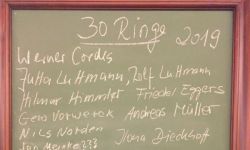 30 Ringe 2019
Werner Cordes
Jutta Luttmann, Rolf Luttmann
Hilmar Himmler Friedel Eggers
Gerd Vorwerk Andreas Müller
Nils Norden Ilona Dieckhoff